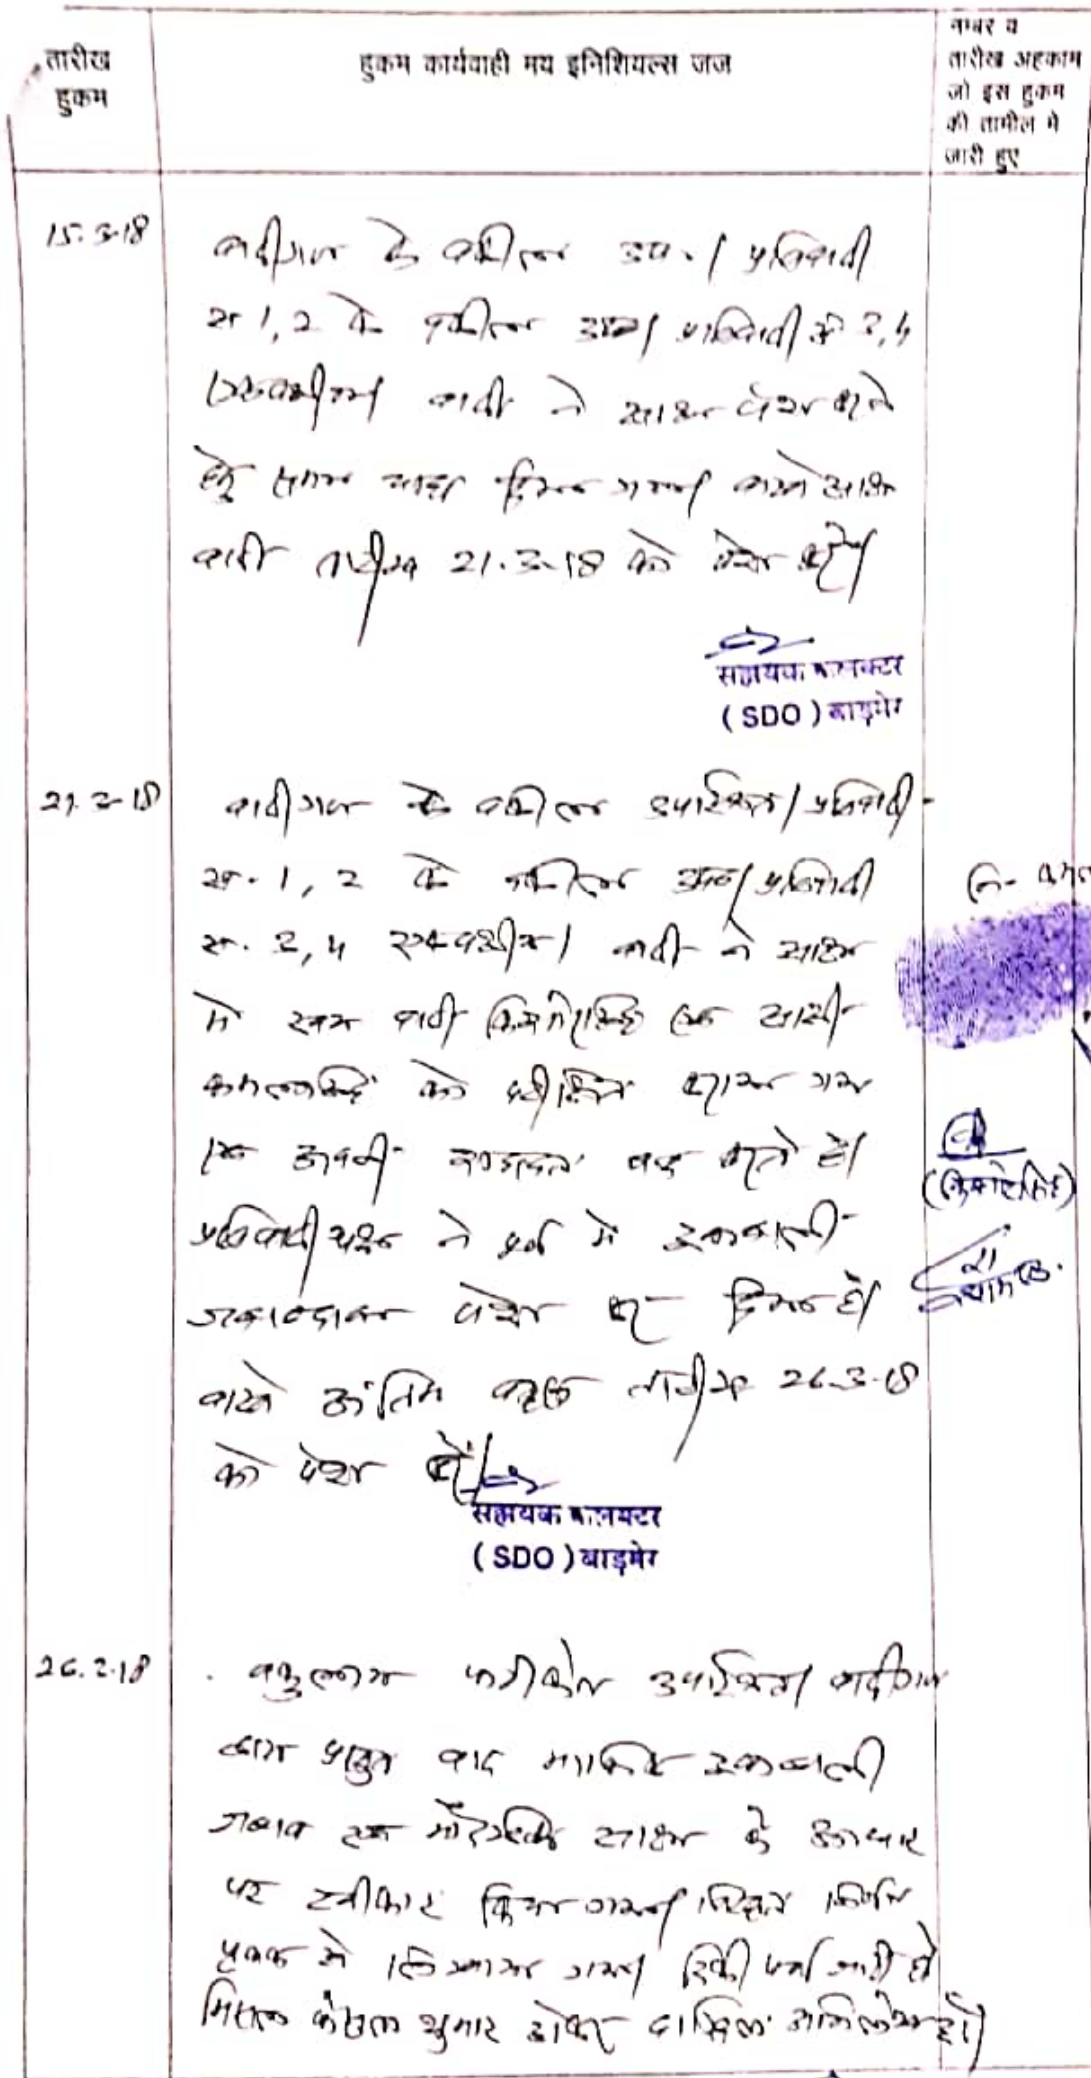 तारीख
हुकम
हुकम कार्यवाही मय इनिशियल्स जज
नम्बर व
तारीख अहकाम
जो इस हुकम
की तामील मे
जारी हुए
15.3.18
वादीगण के वकील उप./ प्रतिवादी
स 1,2 के वकील उप/ प्रतिवादी सं 3,4
एकपक्षीय/ वादी ने साक्ष्य पेश करने
हेतु समय चाहा दिया गया/ वास्ते साक्ष्य
वादी तारीख 21.3.18 को पेश हो/
सहायक कलक्टर
(SDO) बाड़मेर
21.3.18
वादीगण के वकील उपस्थित/ प्रतिवादी
स. 1, 2 के वकील उप/ प्रतिवादी
स. 3, 4 एकपक्षीय/ वादी ने साक्ष्य
मे स्वयं वादी एवं साक्षी
कमलसिंह को परीक्षित कराया गया
एवं अपनी बन्द करते है/
प्रतिवादी पक्ष ने पूर्व मे इकबाली
जवाबदावा पेश कर दिया है/
वास्ते अंतिम बहस तारीख 26.3.18
को पेश हो/
सहायक कलक्टर
(SDO) बाड़मेर
26.3.18
वकुलाय फरीकेन उपस्थित/ वादीगण
द्वारा प्रस्तुत वाद इकबाली
जवाब एवं मौखिक साक्ष्य के आधार
पर स्वीकार किया गया/ विस्तृत निर्णय
पृथक से लिखाया गया/ डिक्री पर्चा जारी हो
मिसल फैसल शुमार होकर दाखिल अभिलेख हो/